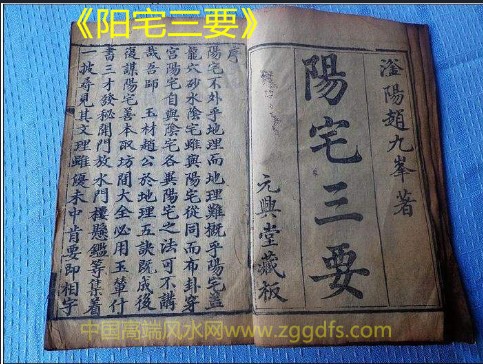 《阳宅三要》
滏陽趙九峯著
陽宅三要
元興堂藏板
序
陽宅不外乎地理而地理難概乎陽宅蓋
龍穴砂水陰宅雖與陽宅從同而布卦穿
宮陽宅自與陰宅各異陽宅之法可不講
哉吾師 玉材趙公於地理五訣既成後
復謀陽宅善本取坊間大全必用玉筆什
書三才發秘開門放水門樓懸鑑等集着
一披尋見其文理雖優未中肯要即相宇
中国高端风水网www.zggdfs.com